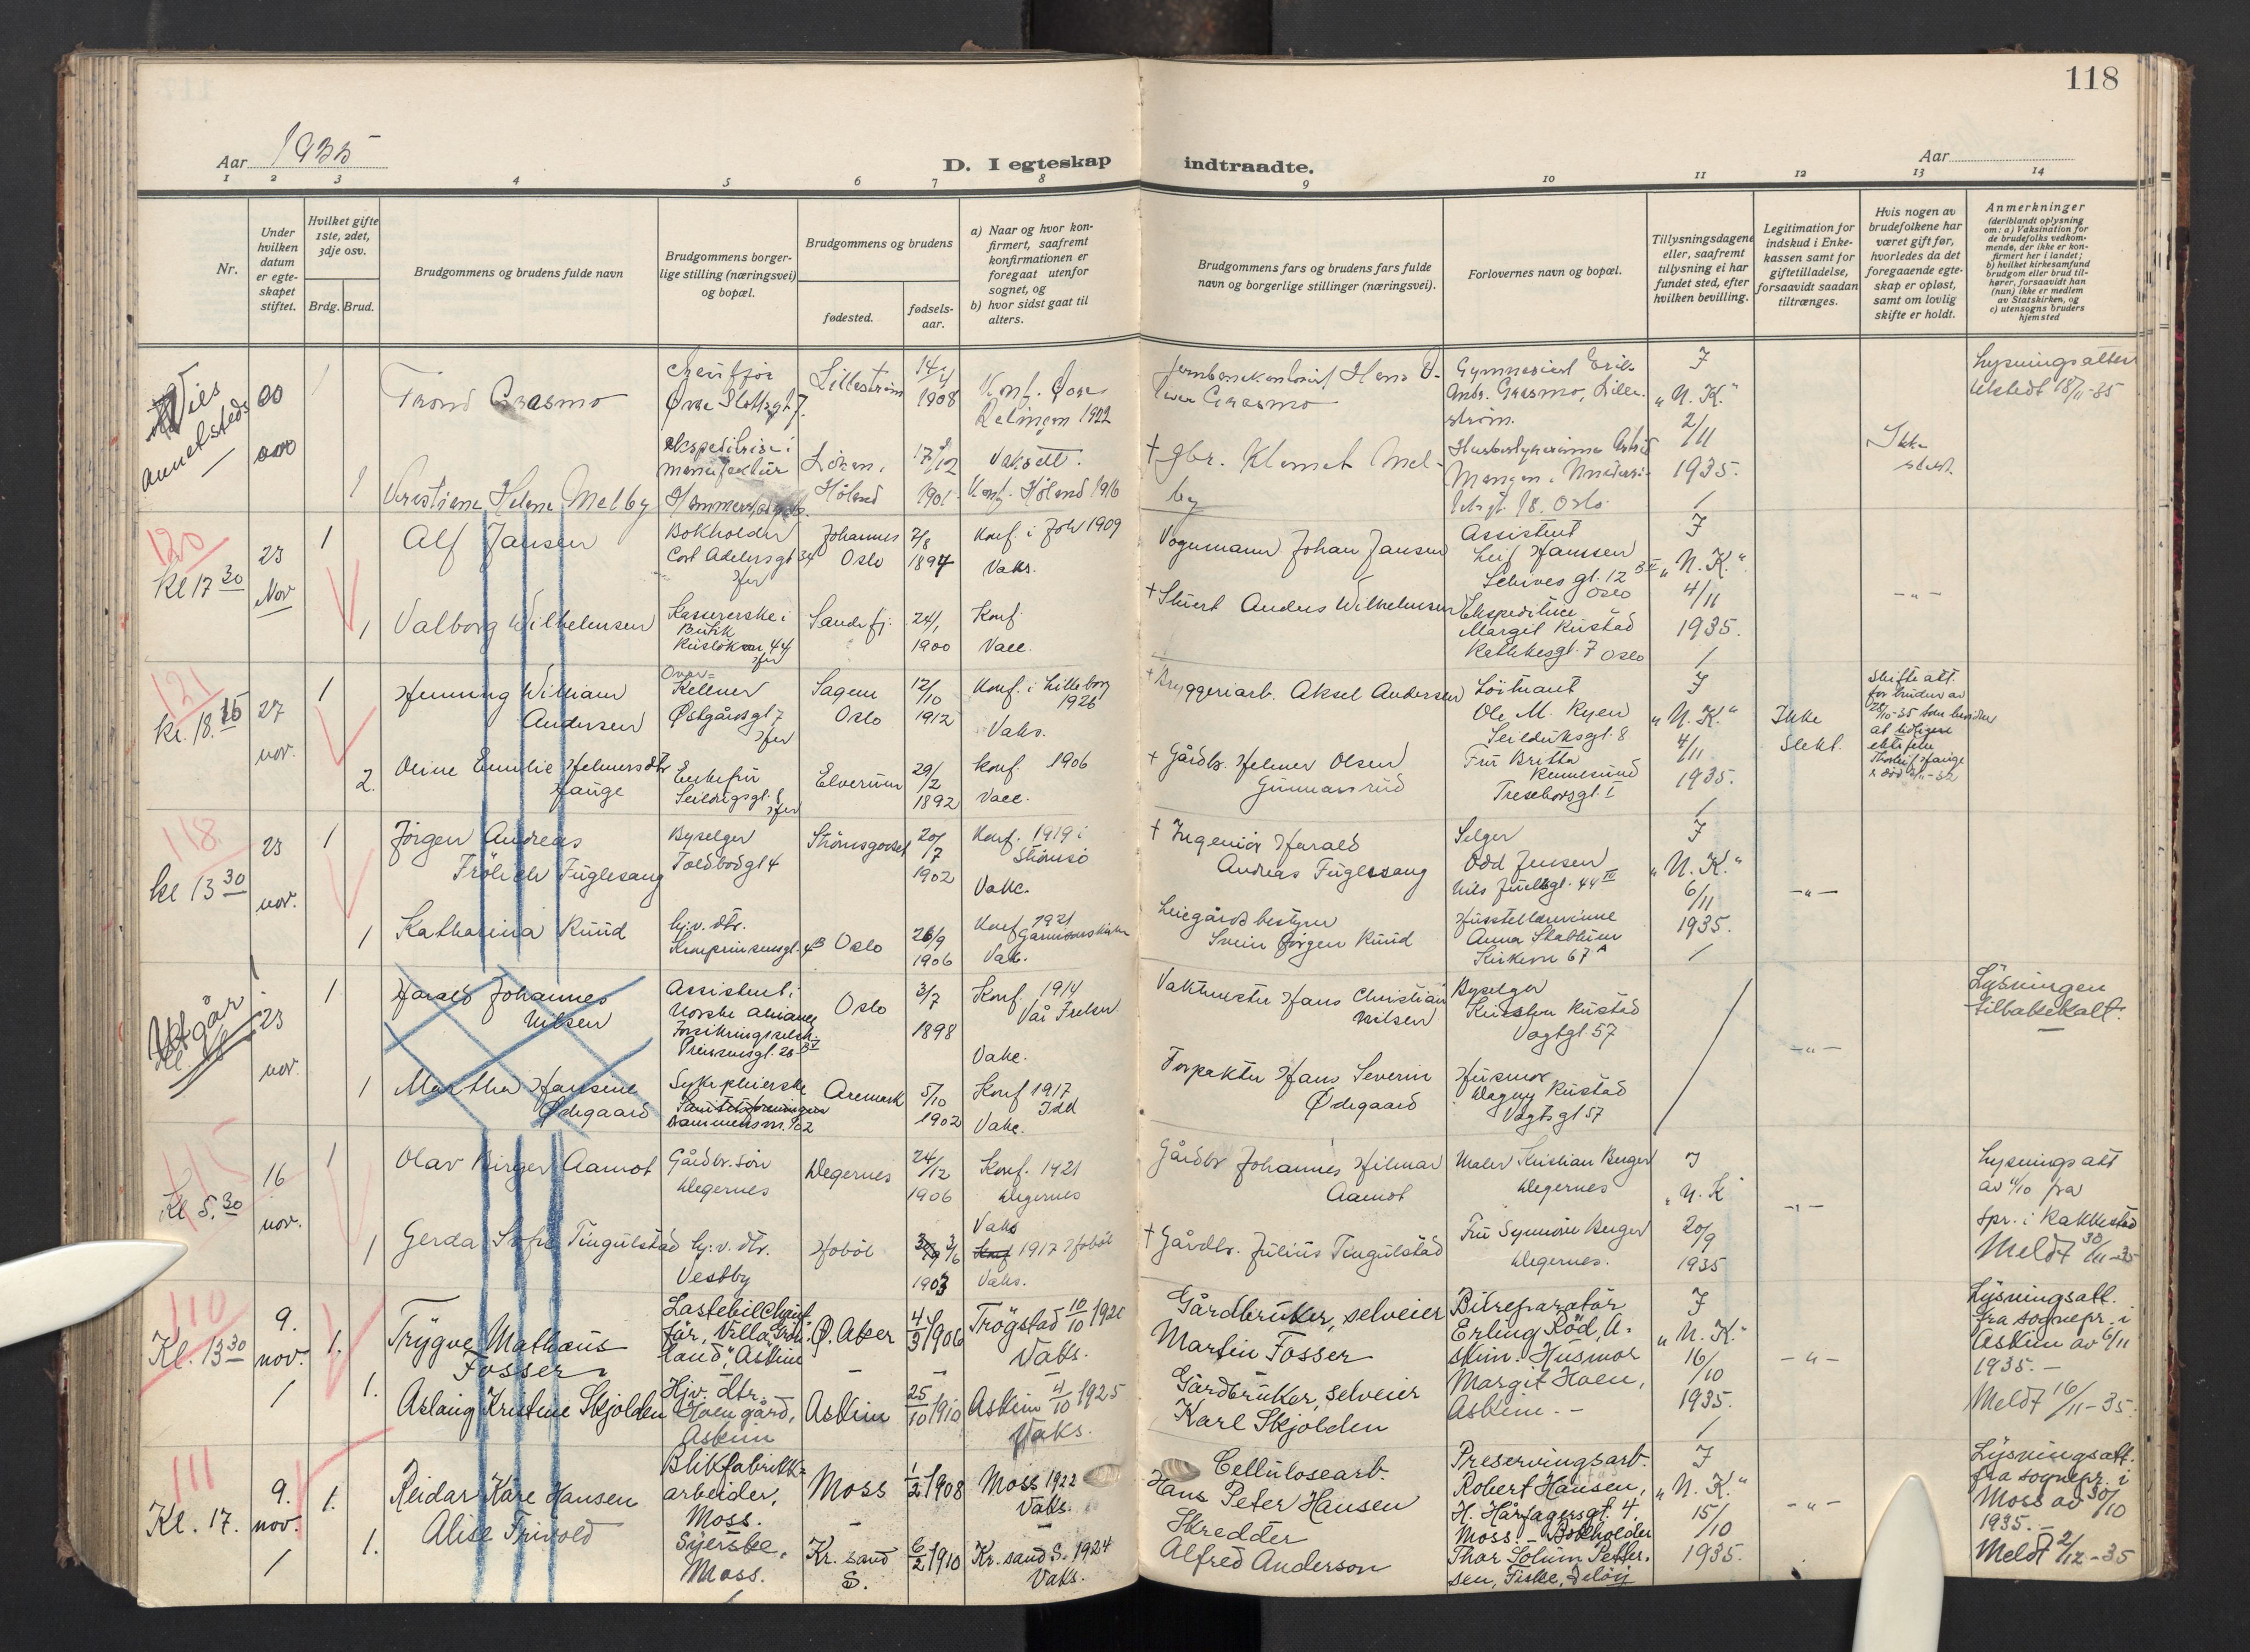 118
Aar 1935
D. I egteskap indtraadte.
Aar
1 2 3 4 5 6 7 8 9 10 11 12 13 14
Nr.
Under
hvilken
datum
er egte-
skapet
stiftet.
Hvilket gifte
1ste, 2det,
3dje osv.
Brdg. Brud.
Brudgommens og brudens fulde navn
Brudgommens borger-
lige stilling (næringsvei)
og bopæl.
Brudgommens og brudens
fødested.
fødsels-
aar.
a) Naar og hvor kon-
firmert, saafremt
konfirmationen er
foregaat utenfor
sognet, og
b) hvor sidst gaat til
alters.
Brudgommens fars og brudens fars fulde
navn og borgerlige stillinger (næringsvei).
Forlovernes navn og bopæl.
Tillysningsdagene
eller, saafremt
tillysning ei har
fundet sted, efter
hvilken bevilling.
Legitimation for
indskud i Enke-
kassen samt for
giftetilladelse,
forsaavidt saadan
tiltrænges.
Hvis nogen av
brudefolkene har
været gift før,
hvorledes da det
foregaaende egte-
skap er opløst,
samt om lovlig
skifte er holdt.
Anmerkninger
(deriblandt oplysning
om: a) Vaksination for
de brudefolks vedkom-
mende, der ikke er kon-
firmert her i landet;
b) hvilket kirkesamfund
brudgom eller brud til-
hører, forsaavidt han
(hun) ikke er medlem
av Statskirken, og
c) utensogns bruders
hjemsted
Vies
annetsteds
1
Trond Grasmo
Øvre Slottsgt 7.
Lillestrøm
14/4
1908
Konf. Øvre
Rælingen 1922
Gymnasiast Erik
Grasmo, Lille-
strøm.
J
"N. K."
2/11
1935.
Lysningsatten
utstedt 18/11-35
1
Helene Melby
ekspeditrise i
manufaktur
Löken i
Höland
17/12
1901
Vaksatt.
Konf. Höland 1916
† gbr. Klemet Mel-
by
Oslo
Ikke
slekt.
120
Kl 17 30
23
Nov
1
Alf Jansen
Bokholder
Cort Adelersgt 34
her
Johannes
Oslo
2/8
1894
Konf. i Joh 1909
Vaks.
Vognmann Johan Jansen
Assistent
Leif Hanssen
Schives gt. 12
Oslo
J
"N. K."
4/11
1935.
-"-
1
Valborg Wilhelmsen
Kassererske i
Butik
44
her
Sandefj.
24/1
1900
Konf
Vacc.
† Stuert Anders Wilhelmsen
Ekspeditrice
Margit Rustad
7 Oslo
121
kl. 18.15
27
nov.
1
Henning William
Andersen
Over-
Kellner
Østgårdsgt 7
her
Sagene
Oslo
12/10
1912
Konf. i Lilleborg
1926
Vaks.
† Bryggeriarb. Aksel Andersen
Löitnant
Ole M. Ryen
Seilduksgt. 8
J
"N. K."
4/11
1935.
Ikke
slekt.
Skifte att.
for bruden av
at tidligere
2.
Oline Emilie Helmersdtr
Hauge
Enkefru
Seildugsgt. 8
her
Elverum
29/2
1892
Konf. 1906
Vacc.
† Gårdbr. Helmer Olsen
Gunnarsrud
Fru Britta
118
kl 13 30
23
nov.
1
Jörgen Andreas
Frölich Fuglesang
Byselger
Toldbodgt 4
Strömsgodset
20/7
1902
Konf. 1919 i
Strömsö
Vakc.
† Ingeniör Harald
Andreas Fuglesang
Selger
Odd Jensen
Nils Juelsgt. 44 III
J
"N. K."
6/11
1935.
-"-
1
Katharina Ruud
hj.v. dtr.
Kronprinsensgt. 4 B
Oslo
26/9
1906
Konf. 1921
Garnisonskirken
Vak.
Leiegårdsbestyrer
Svein Jörgen Ruud
Husstellærerinne
Anna Stabrun
Kirkevn 67 A
Utgår
23
nov.
1
Harald Johannes
Nilsen
Assistent i
Norske Alliance
Forsikringsselsk.
Prinsensgt. 26
Oslo
3/7
1898
Konf. 1914
Vår Frelser
Vakc.
Vaktmester Hans Christian
Nilsen
Byselger
Kristen Rustad
Vogtgt. 57
-"-
Lysningen
tilbakekalt.
1
Martha Hansine
Ødegaard
Sykepleierske
Sanitetsforeningen
Drammensvn. 102
Aremark
5/10
1902
Konf 1917
Idd
Vakc.
Forpakter Hans Severin
Ødegaard
Husmor
Dagny Rustad
Vogtsgt 57
115
Kl 5.30
16
nov.
1
Olav Birger Aamot
Gårdbr. sön
Degernes
Degernes
24/12
1906
Konf. 1921
Degernes
Vaks
Gårdbr Johannes Hilmar
Aamot
Maler Kristian Berger
Degernes
J
"N. K"
20/9
1935
-"-
Lysningsatt
av 4/10 fra
spr. i Rakkestad
Meldt 30/11-35
1
Gerda Sofie Tingulstad
hj.v. dtr.
Vestby
Hobøl
3/6
1903
Konf 1917 Hobøl
Vaks.
† Gårdbr. Julius Tingulstad
Fru Synnöve Berger
Degernes.
110
Kl. 13 30
9.
nov.
1.
Trygve Mathæus
Fosser
Lastebilchauf-
för, Villa "Grön-
land", Askim
Ø. Aker
4/3 1906
Trögstad 10/10 1920
Vaks.
Gårdbruker, selveier
Martin Fosser
Bilreparatör
Erling Röd, A-
skim. Husmor
Margit Hoen,
Askim. -
J
"N. K."
16/10
1935.
-"-
Lysningsatt.
fra sognepr. i
Askim av 6/11
1935. -
Meldt 16/11-35.
1.
Aslaug Kristine Skjolden
Hjv. dtr.
Hoen gård,
Askim
Askim
25/10 1910
Askim 4/10 1925
Vaks.
Gårdbruker, selveier
Karl Skjolden
111
Kl. 17.
9.
nov.
1.
Reidar Kåre Hansen
Blikfabrikk-
arbeider,
Moss.
Moss
1/2 1908
Moss 1922
Vaks.
Cellulosearb.
Hans Peter Hansen
Preservingsarb.
Robert Hansen,
H. Hårfagersgt. 4,
Moss. - Bokholder
Thor Solum Petter-
sen, Fiske, Jelöy
J
"N. K."
15/10
1935.
-"-
Lysningsatt.
fra sognepr. i
Moss av 30/10
1935. -
Meldt 2/12-35
1.
Alise Frivold
Syerske,
Moss.
Kr. sand
S.
6/2 1910
Kr. sand S. 1924
Vaks.
Skredder
Alfred Anderson